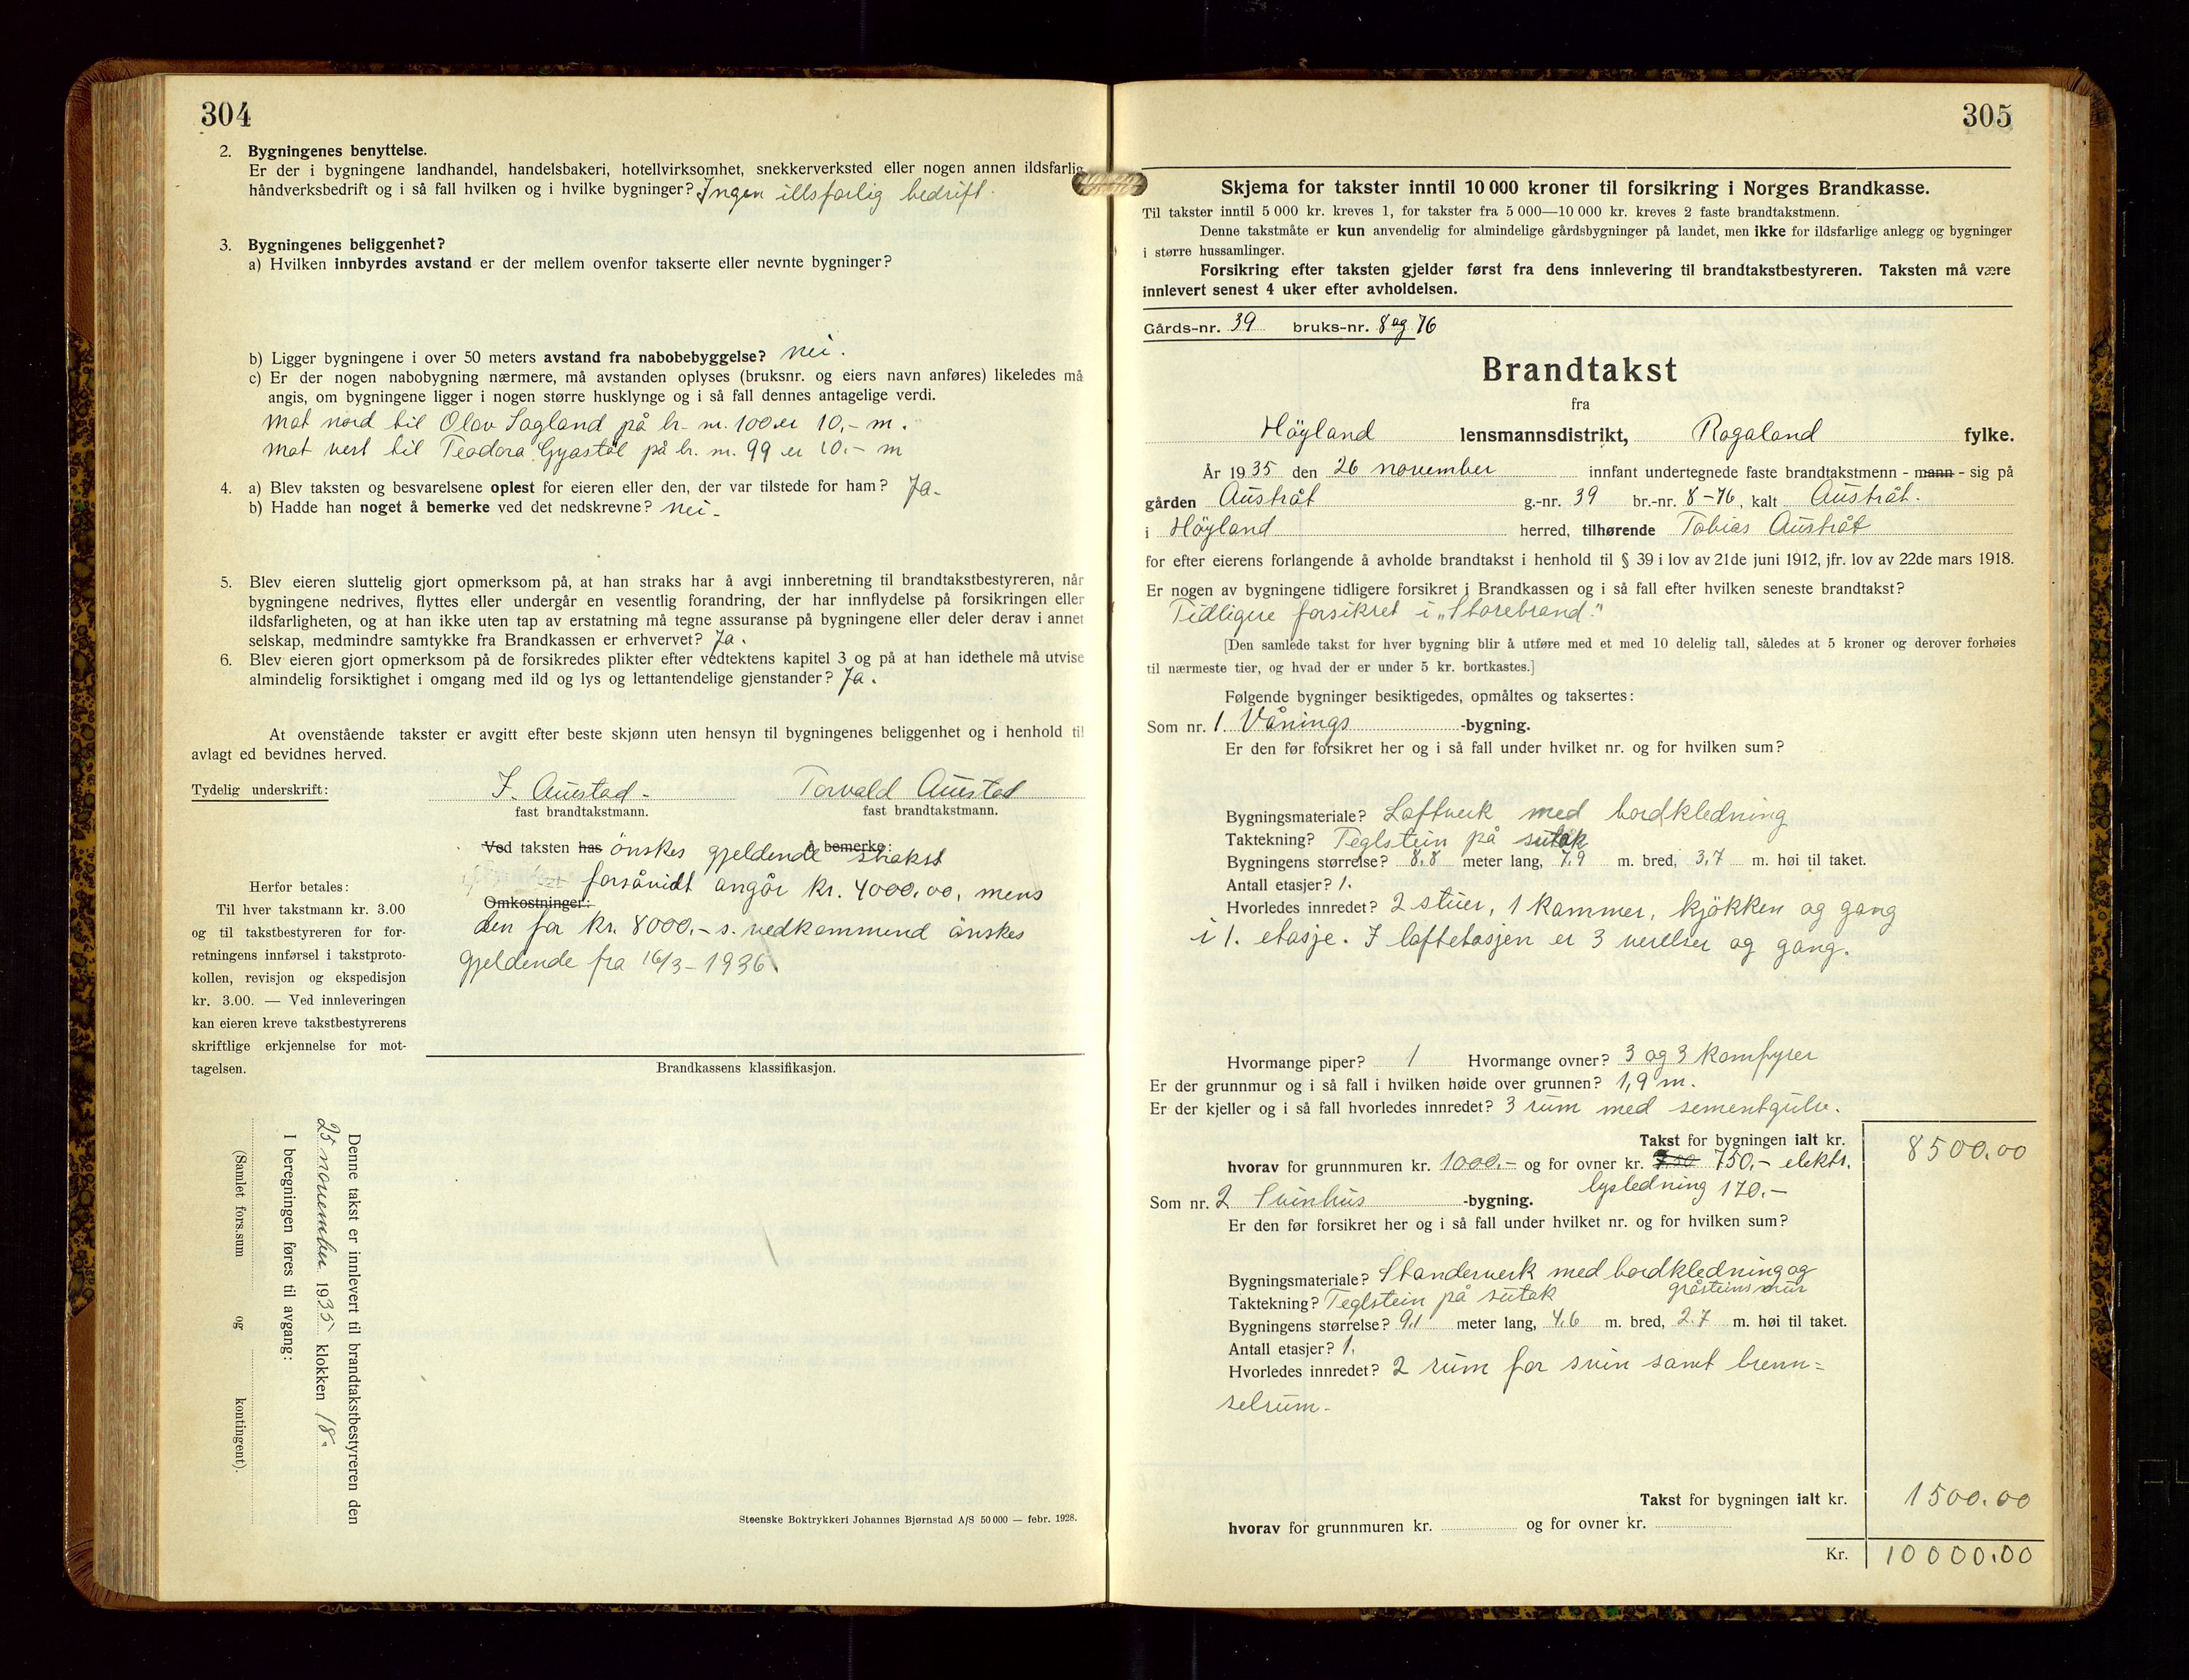 304
2. Bygningenes benyttelse.
Er der i bygningene landhandel, handelsbakeri, hotellvirksomhet, snekkerverksted eller nogen annen ildsfarlig
håndverksbedrift og i så fall hvilken og i hvilke bygninger? Ingen illsfarlig bedrift.
3. Bygningenes beliggenhet?
a) Hvilken innbyrdes avstand er der mellem ovenfor takserte eller nevnte bygninger?
b) Ligger bygningene i over 50 meters avstand fra nabobebyggelse? nei.
c) Er der nogen nabobygning nærmere, må avstanden oplyses (bruksnr. og eiers navn anføres) likeledes må
angis, om bygningene ligger i nogen større husklynge og i så fall dennes antagelige verdi.
Mot nord til Olav Sagland på br. nr. 100 er 10,- m.
Mot vest til Teodora Gyastøl på br. nr. 99 er 10.- m
4. a) Blev taksten og besvarelsene oplest for eieren eller den, der var tilstede for ham? Ja.
b) Hadde han noget å bemerke ved det nedskrevne? nei.
5. Blev eieren sluttelig gjort opmerksom på, at han straks har å avgi innberetning til brandtakstbestyreren, når
bygningene nedrives, flyttes eller undergår en vesentlig forandring, der har innflydelse på forsikringen eller
ildsfarligheten, og at han ikke uten tap av erstatning må tegne assuranse på bygningene eller deler derav i annet
selskap, medmindre samtykke fra Brandkassen er erhvervet? Ja.
6. Blev eieren gjort opmerksom på de forsikredes plikter efter vedtektens kapitel 3 og på at han idethele må utvise
almindelig forsiktighet i omgang med ild og lys og lettantendelige gjenstander? Ja.
At ovenstående takster er avgitt efter beste skjønn uten hensyn til bygningenes beliggenhet og i henhold til
avlagt ed bevidnes herved.
Tydelig underskrift: J. Auestad. Torvald Auestad
fast brandtakstmann. fast brandtakstmann.
Ved taksten has ønskes gjeldende å bemerke: straks
forsåvidt angår kr. 4000.00, mens
Omkostninger:
den for kr. 8000.- s. vedkommend ønskes
gjeldende fra 16/3-1936.
Herfor betales:
Til hver takstmann kr. 3.00
og til takstbestyreren for for-
retningens innførsel i takstproto-
kollen, revisjon og ekspedisjon
kr. 3.00. — Ved innleveringen
kan eieren kreve takstbestyrerens
skriftlige erkjennelse for mot-
tagelsen.
Brandkassens klassifikasjon.
Denne takst er innlevert til brandtakstbestyreren den
25 november 1935 klokken 18.
I beregningen føres til avgang:
(Samlet fors.sum og kontingent).
Steenske Boktrykkeri Johannes Bjørnstad A/S 50 000 — febr. 1928.
305
Skjema for takster inntil 10 000 kroner til forsikring i Norges Brandkasse.
Til takster inntil 5 000 kr. kreves 1, for takster fra 5 000—10 000 kr. kreves 2 faste brandtakstmenn.
Denne takstmåte er kun anvendelig for almindelige gårdsbygninger på landet, men ikke for ildsfarlige anlegg og bygninger
i større hussamlinger.
Forsikring efter taksten gjelder først fra dens innlevering til brandtakstbestyreren. Taksten må være
innlevert senest 4 uker efter avholdelsen.
Gårds-nr. 39 bruks-nr. 8 og 76
Brandtakst
fra
Høyland lensmannsdistrikt, Rogaland fylke.
År 1935 den 26 november innfant undertegnede faste brandtakstmenn - mann - sig på
gården Austråt g.-nr. 39 br.-nr. 8-76, kalt Austråt.
i Høyland herred, tilhørende Tobias Austråt
for efter eierens forlangende å avholde brandtakst i henhold til § 39 i lov av 21de juni 1912, jfr. lov av 22de mars 1918.
Er nogen av bygningene tidligere forsikret i Brandkassen og i så fall efter hvilken seneste brandtakst?
Tidligere forsikret i „Storebrand."
[Den samlede takst for hver bygning blir å utføre med et med 10 delelig tall, således at 5 kroner og derover forhøies
til nærmeste tier, og hvad der er under 5 kr. bortkastes.]
Følgende bygninger besiktigedes, opmåltes og taksertes:
Som nr. 1 Vånings -bygning.
Er den før forsikret her og i så fall under hvilket nr. og for hvilken sum?
Bygningsmateriale? Loftverk med bordkledning
Taktekning? Teglstein på sutak
Bygningens størrelse? 8,8 meter lang, 7,9 m. bred, 3,7 m. høi til taket.
Antall etasjer? 1.
Hvorledes innredet? 2 stuer, 1 kammer, kjøkken og gang
i 1. etasje. I loftetasjen er 3 verelser og gang.
Hvormange piper? 1 Hvormange ovner? 3 og 3 komfyrer
Er der grunnmur og i så fall i hvilken høide over grunnen? 1,9 m.
Er der kjeller og i så fall hvorledes innredet? 3 rum med sementgulv.
Takst for bygningen ialt kr. 8500.00
hvorav for grunnmuren kr. 1000.- og for ovner kr. 750.- elektr.
lysledning 170.-
Som nr. 2 Svinhus -bygning.
Er den før forsikret her og i så fall under hvilket nr. og for hvilken sum?
Bygningsmateriale? Standerverk med bordkledning og
gråsteins mur
Taktekning? Teglstein på sutak
Bygningens størrelse? 9,1 meter lang, 4,6 m. bred, 2.7 m. høi til taket.
Antall etasjer? 1.
Hvorledes innredet? 2 rum for svin samt brenn=
selrum.
Takst for bygningen ialt kr. 1500.00
hvorav for grunnmuren kr. og for ovner kr.
Kr. 10000.00